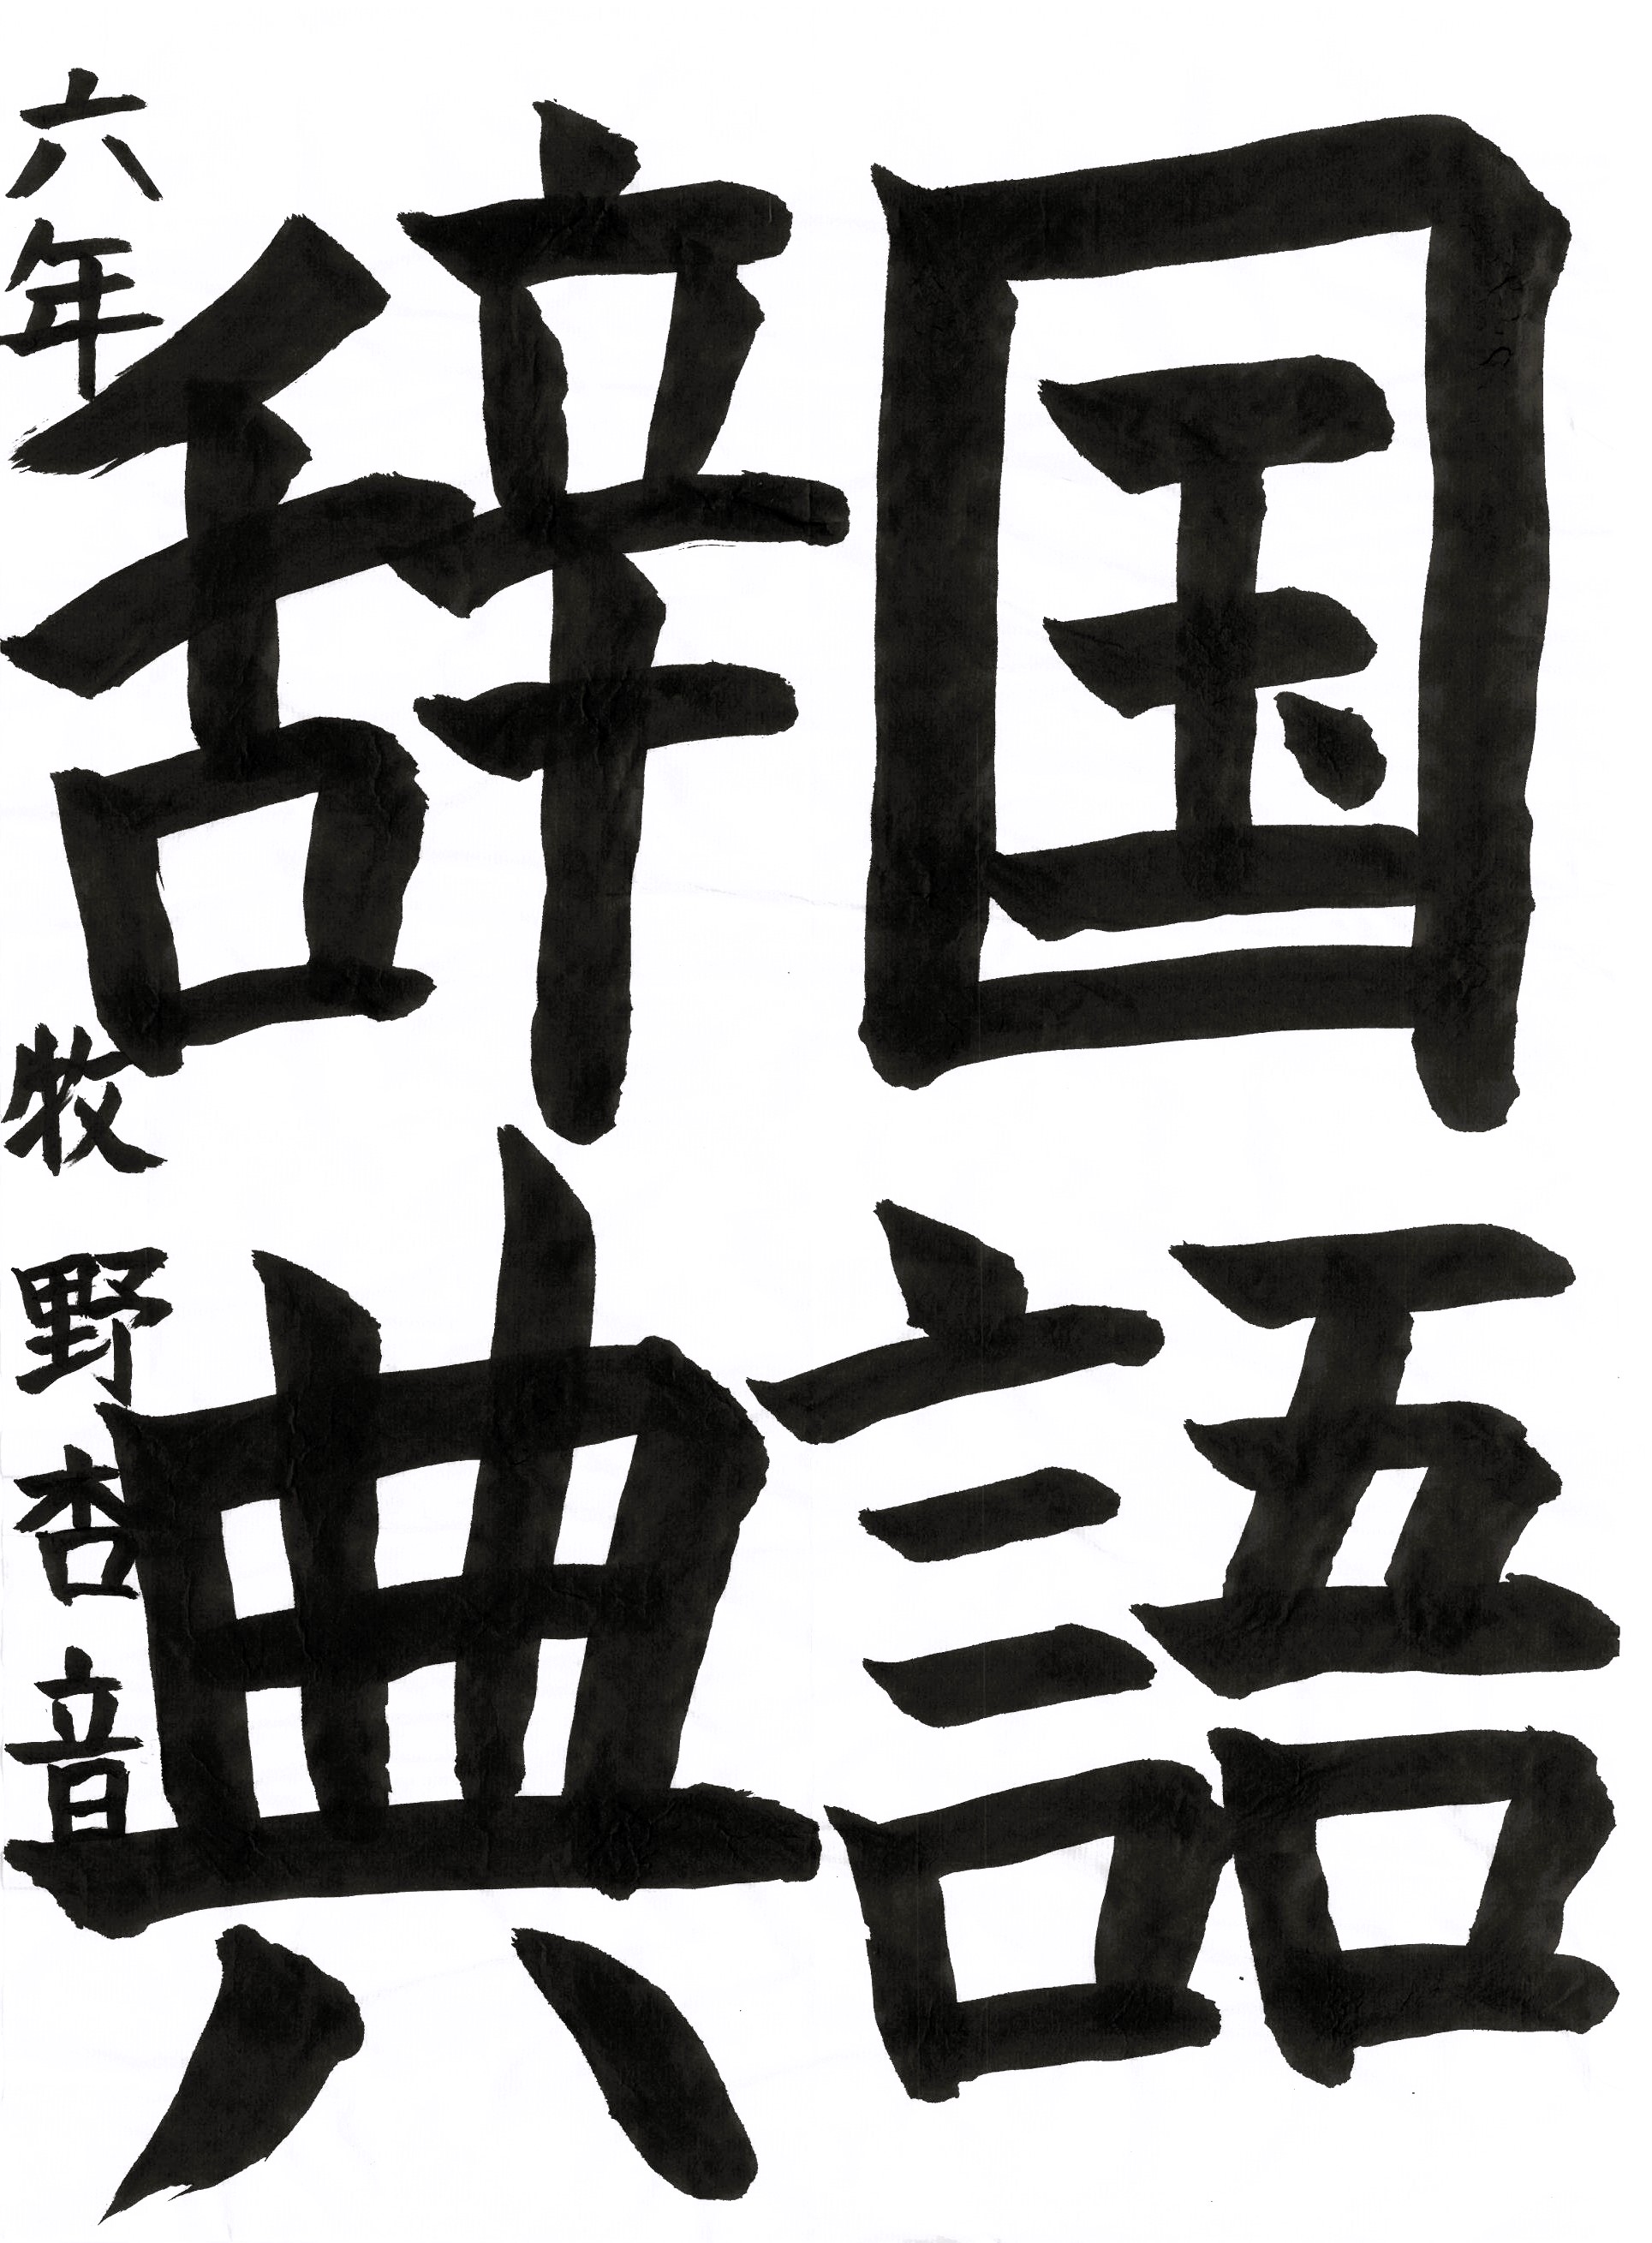 国語
辞典
六年 牧野杏音